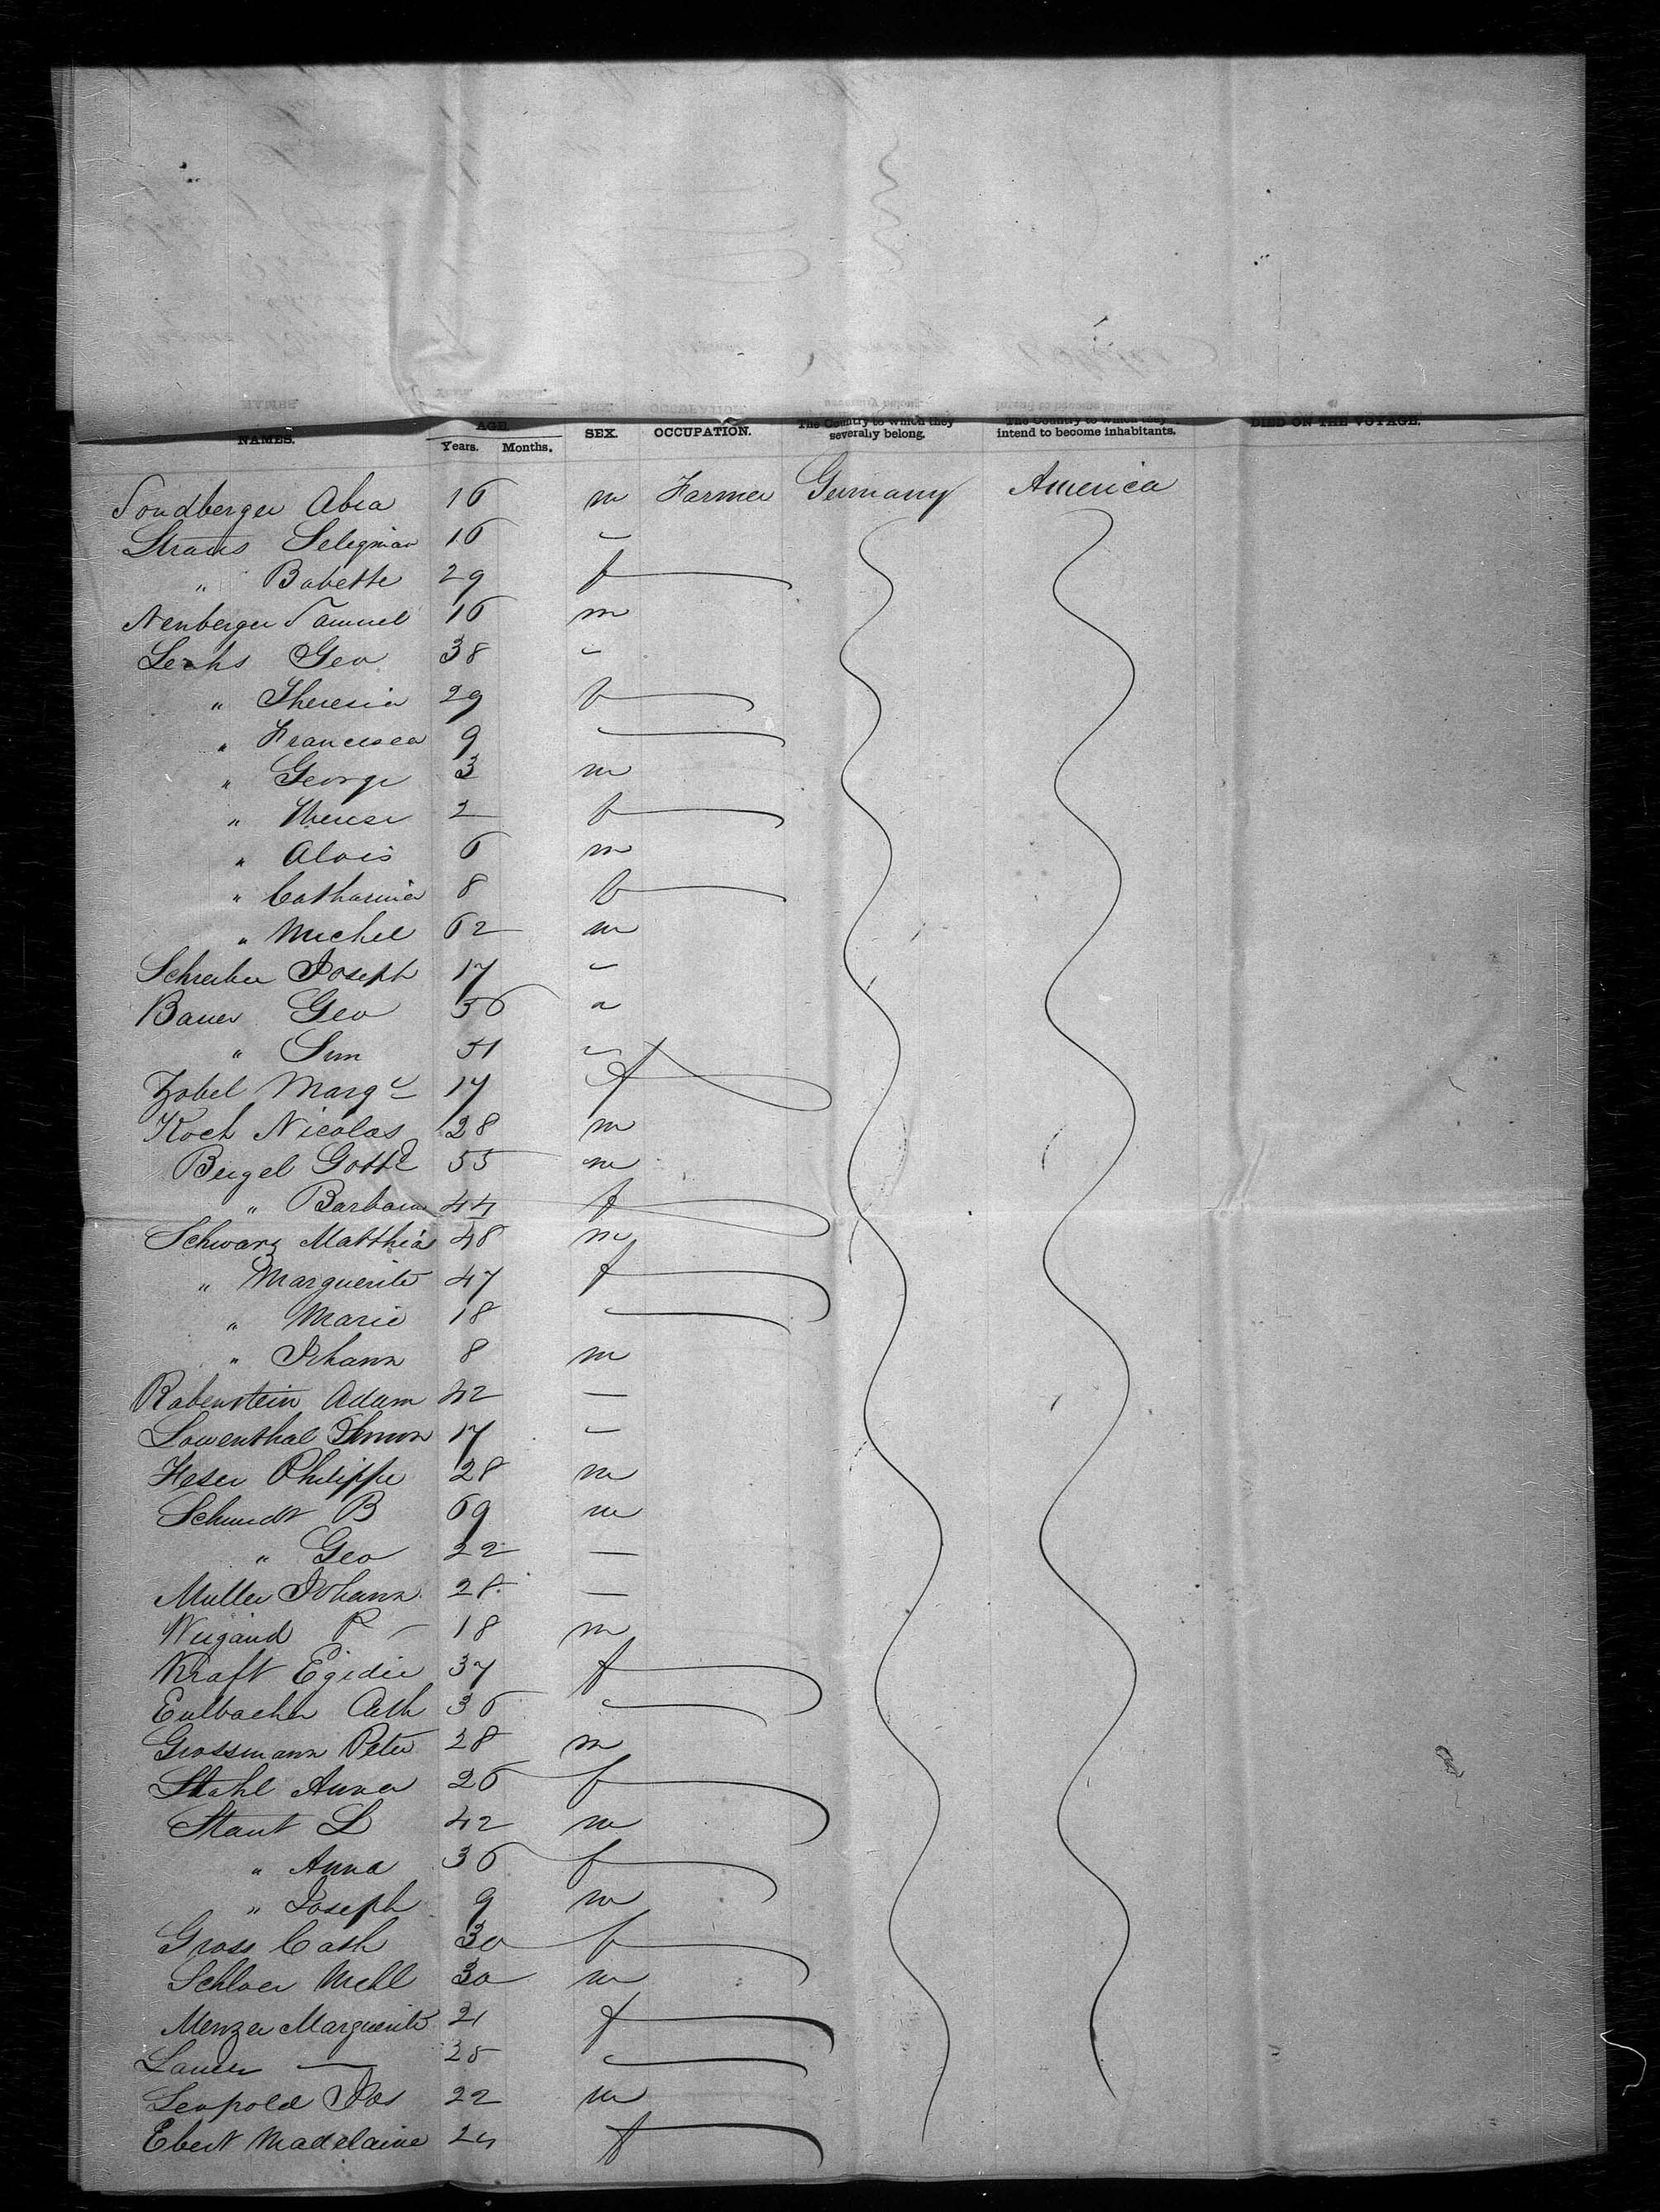 NAMES. AGE. Years. Months. SEX. OCCUPATION. The Country to which they severally belong. The Country to which they intend to become inhabitants. DIED ON THE VOYAGE.
Sondberger Abra 16 m Farmer Germany America
Straus Seligman 16 -
" Babette 29 f
Nenberger Samuel 16 m
Lechs Geo 38 -
" Theresia 29 f
" Francisca 9
" George 3 m
" Therese 2 f
" Alois 6 m
" Catharina 8 f
" Michel 62 m
Schreiber Joseph 17 -
Bauer Geo 36
" Sim 51
Zobel Margt 17 f
Koch Nicolas 28 m
Beigel Gottl 55 m
" Barbara 44 f
Schwarz Matthias 48 m
" Marguerite 47 f
" Marie 18
" Johann 8 m
Rabenstein Adam 42 —
Lowenthal Simon 17 —
Heser Philippe 28 m
Schmidt B 69 m
" Geo 22 —
Muller Johann 28 —
Weigand P — 18 m
Kraft Egidie 37 f
Eulbacher Cath 36
Grossmann Peter 28 m
Stahl Anna 26 f
Staut L 42 m
" Anna 36 f
" Joseph 9 m
Gross Cath 30 f
Schloer Mchl 30 m
Menzer Marguerite 21 f
Lauer — 25
Leopold Jos 22 m
Ebert Madelaine 24 f